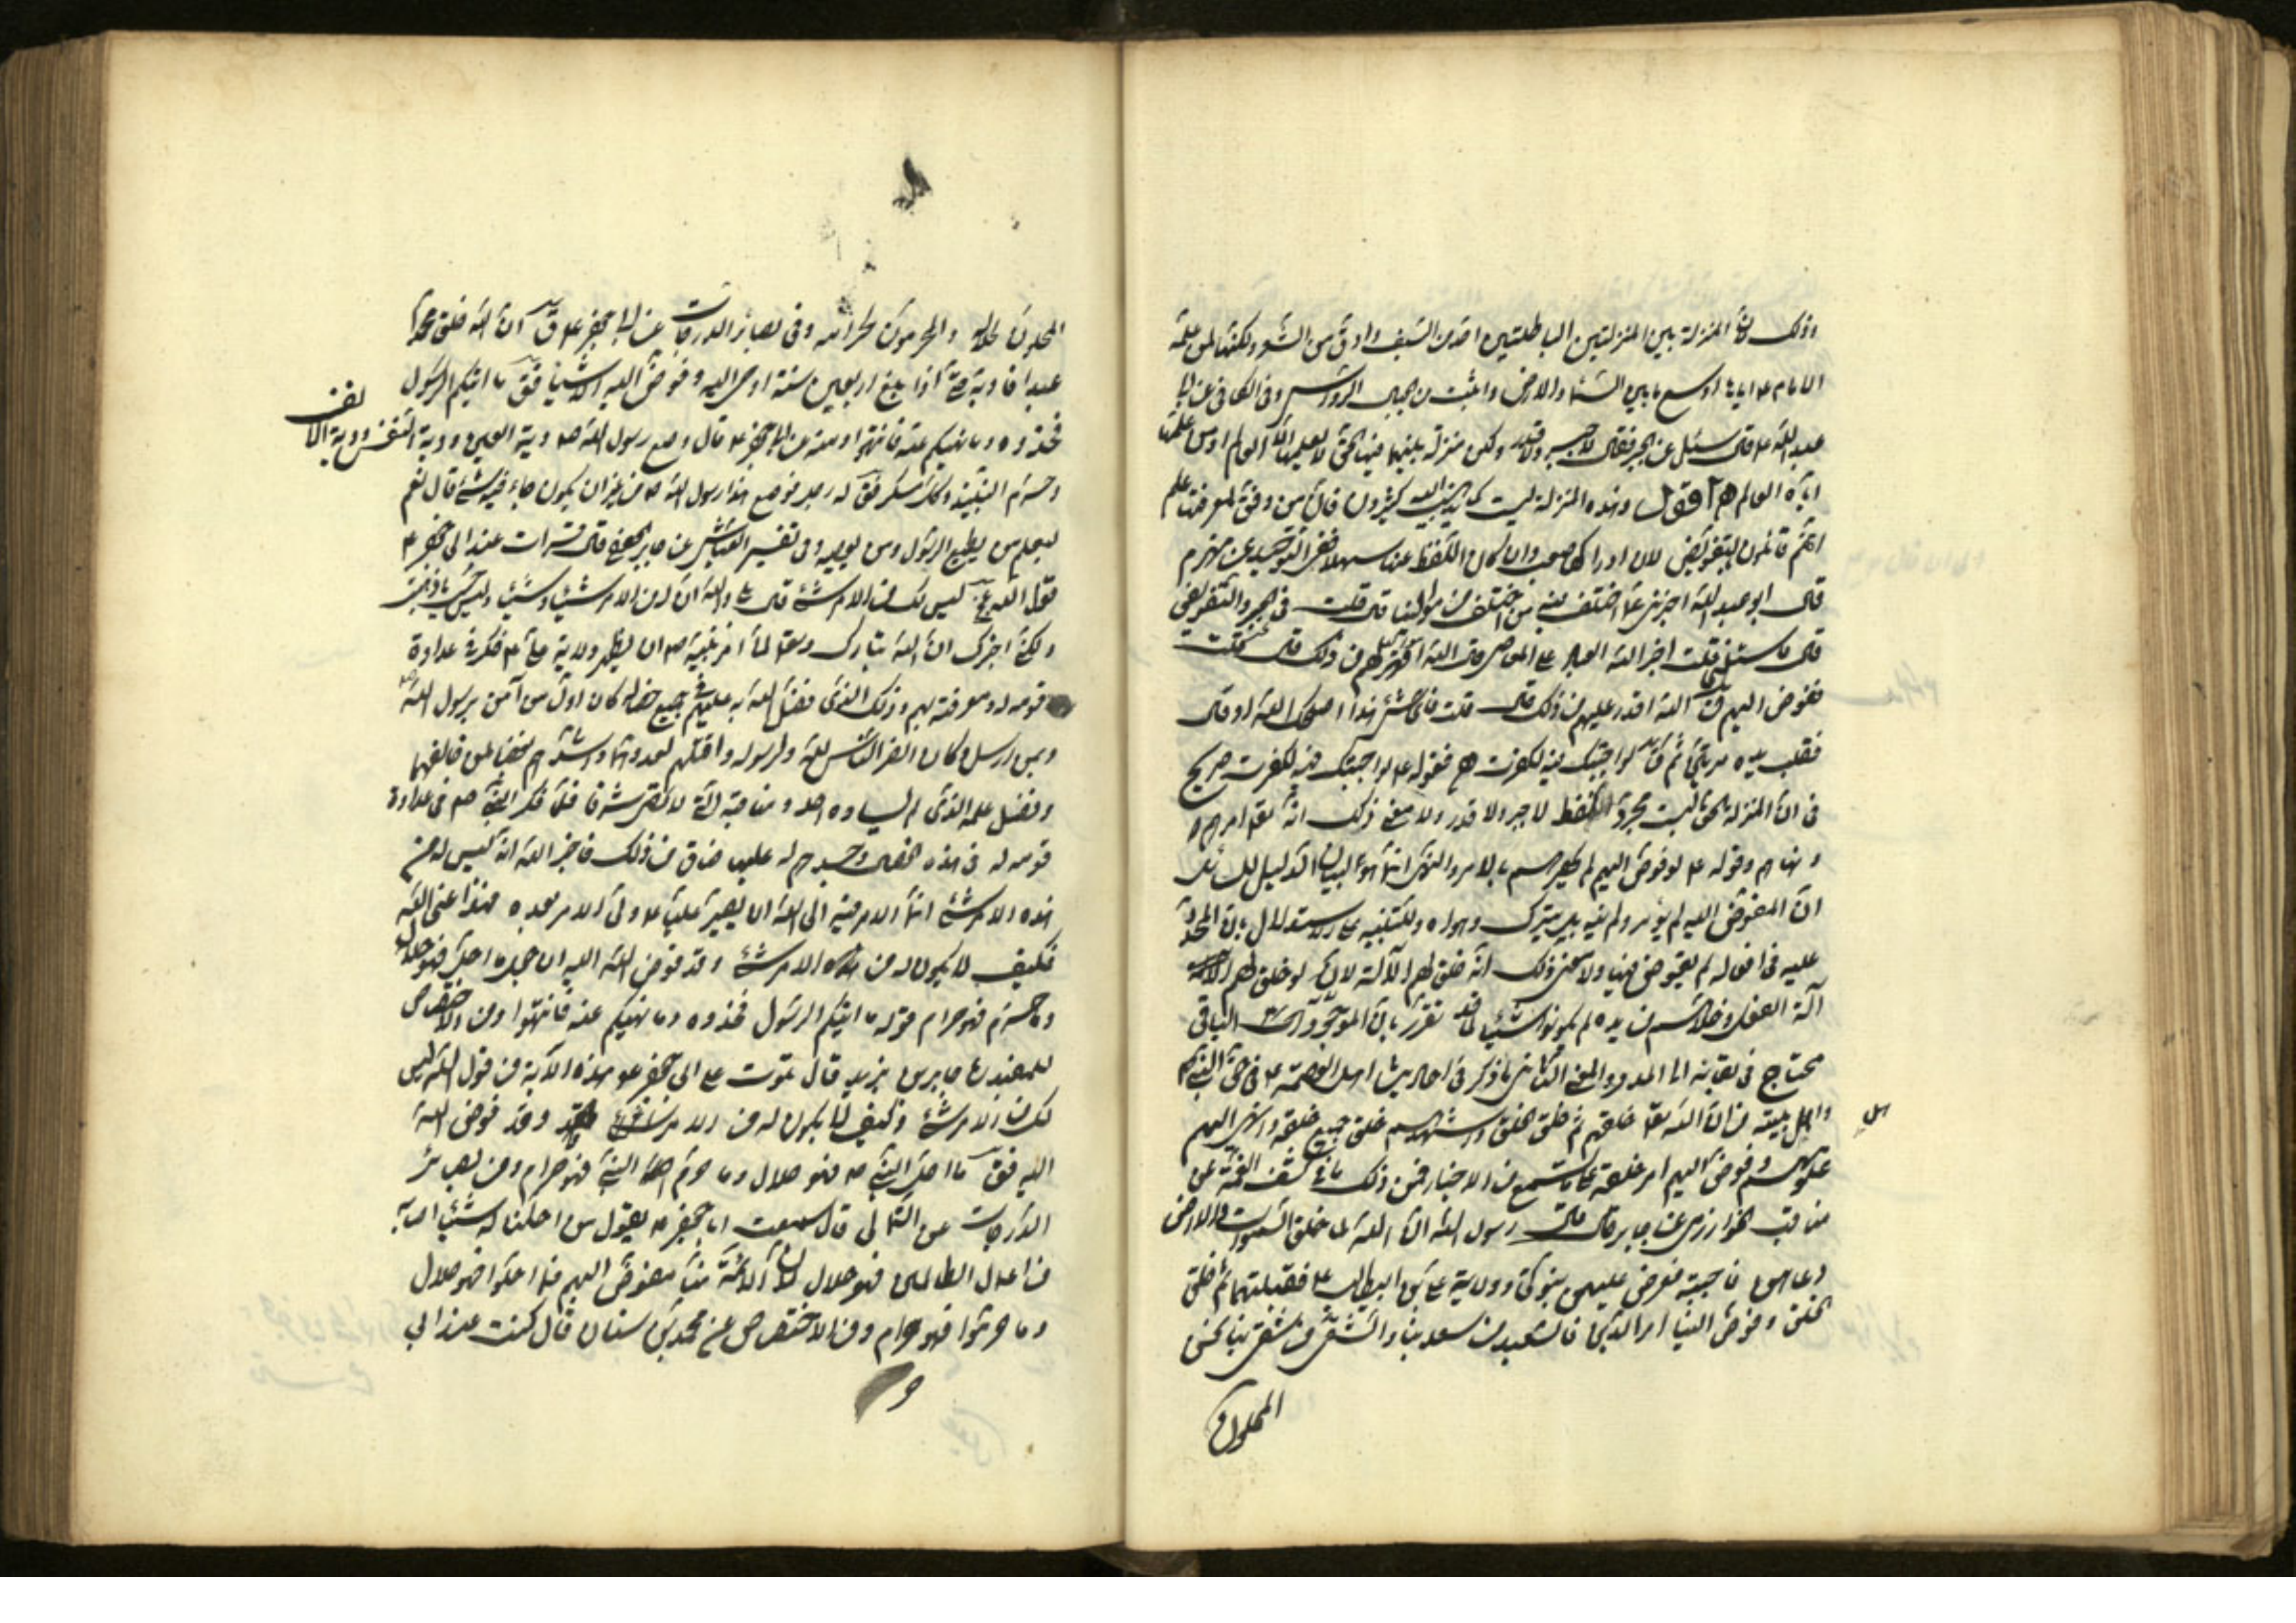 وذلك لان المنزلة بين المنزلتين الباطلتين احد من السيف وادق من الشعر ولكنها لمن علمه
الامام ع اياها اوسع ما بين السماء والارض واثبت من الجبال الرواسي وفي الكافي عن ابي
عبد الله ع قال سئل عن الجبر فقال لا جبر ولا قدر ولكن منزلة بينهما فيها الحق لا يعلمها الا العالم او من علمها
اياه العالم اقول وهذه المنزلة ليست كما يذهب اليه كثيرون فان من وفق لمعرفتها علم
انهم قائلون بالتفويض لان ادراكها صعب وان كان اللفظ عندنا سهلا ففي التوحيد عن مهزم
قال ابو عبد الله اخبرني عما اختلف فيه من خلفت من موالينا قال قلت في الجبر والتفويض
قال فاسئلني قلت اجبر الله العباد على المعاصي قال الله اقهر لهم من ذلك قال قلت
ففوض اليهم قال الله اقدر عليهم من ذلك قال قلت فاي شيء هذا اصلحك الله قال
فقلب يده مرتين او ثلثا ثم قال لو اجبتك فيه لكفرت فقوله ع لو اجبتك فيه لكفرت صريح
في ان المنزلة الحق ليست مجرد اللفظ لا جبر ولا قدر ولا معنى ذلك انه تعالى امرهم
ونهاهم وقوله ع لو فوض اليهم لم يحصرهم بالامر والنهي انما هو لبيان الدليل لك
ان المفوض اليه لم يؤمر ولم ينه بل يترك وهواه وللتنبيه على الاستدلال بان
عليه في افعاله لم يفوض فيها ولا معنى ذلك انه خلق لهم الآلة لانه لو خلق لهم
آلة الفعل وخلاهم من يده لم يكونوا شيئا لما قد تقرر بان الموجود الباقي
محتاج في بقائه الى المدد والمعنى الثاني ما ذكر في احاديث اهل العصمة ع في حق النبي
واهل بيته من ان الله تعالى خلقهم ثم خلق الخلق واشهدهم خلق جميع خلقه وانهى اليهم
اهل
علمهم وفوض اليهم امر خلقه كما تسمع من الاخبار فمن ذلك ما في كشف الغمة عن
مناقب الخوارزمي عن جابر قال قال رسول الله ان الله لما خلق السموات والارض
دعاهن فاجبنه فعرض عليهن نبوتي وولاية علي بن ابي طالب ع فقبلتهما ثم خلق
الخلق وفوض الينا امر الدين فالسعيد من سعد بنا والشقي من شقي بنا نحن
المحلون
المحلون لحلاله والمحرمون لحرامه وفي بصائر الدرجات عن ابي جعفر ع قال ان الله خلق محمدا
عبدا فادبه حتى اذا بلغ اربعين سنة اوحى اليه وفوض اليه الاشياء فقال ما آتيكم الرسول
فخذوه وما نهيكم عنه فانتهوا وعنه عن ابي جعفر ع قال وضع رسول الله ص دية العين ودية النفس ودية الانف
وحرم النبيذ وكل مسكر فقال له رجل فوضع هذا رسول الله ص من غير ان يكون جاء فيه شيء قال نعم
ليعلم من يطيع الرسول ومن يعصيه وفي تفسير العياشي عن جابر الجعفي قال قرات عند ابي جعفر ع
قول الله عز ليس لك من الامر شيء قال بلى والله ان له من الامر شيئا وشيئا وليس حيث ذهبت
ولكني اخبرك ان الله تبارك وتعالى لما امر نبيه ص ان يظهر ولاية علي ع فكر في عداوة
قومه له ومعرفته بهم وذلك الذي فضله الله به عليهم في جميع خصاله كان اول من آمن برسول الله
وبمن ارسله وكان انصر الناس لله ولرسوله واقتلهم لعدوهما واشدهم بغضا لمن خالفهما
وفضل علمه الذي لم يساوه احد ومناقبه التي لا تحصى شرفا فلما فكر النبي ص في عداوة
قومه له في هذه الخصال وحسدهم له عليها ضاق من ذلك فاخبر الله انه ليس له من
هذه الامر شيء انما الامر فيه الى الله ان يصير عليا ع ولي الامر بعده فهذا عنى الله
فكيف لا يكون له من الامر شيء وقد فوض الله اليه ان جعل ما احل فهو حلال
وما حرم فهو حرام قوله ما آتيكم الرسول فخذوه وما نهيكم عنه فانتهوا ومن الاختصاص
للمفيد عن جابر بن يزيد قال تلوت على ابي جعفر ع هذه الآية من قول الله ليس
لك من الامر شيء وكيف لا يكون له من الامر شيء وقد فوض الله
اليه فقال ما احل النبي ص فهو حلال وما حرم النبي فهو حرام ومن بصائر
الدرجات عن الثمالي قال سمعت ابا جعفر ع يقول من احللنا له شيئا اصابه
من اعمال الظالمين فهو حلال لان الائمة منا مفوض اليهم فما احلوا فهو حلال
وما حرموا فهو حرام ومن الاختصاص عن محمد بن سنان قال كنت عند ابي